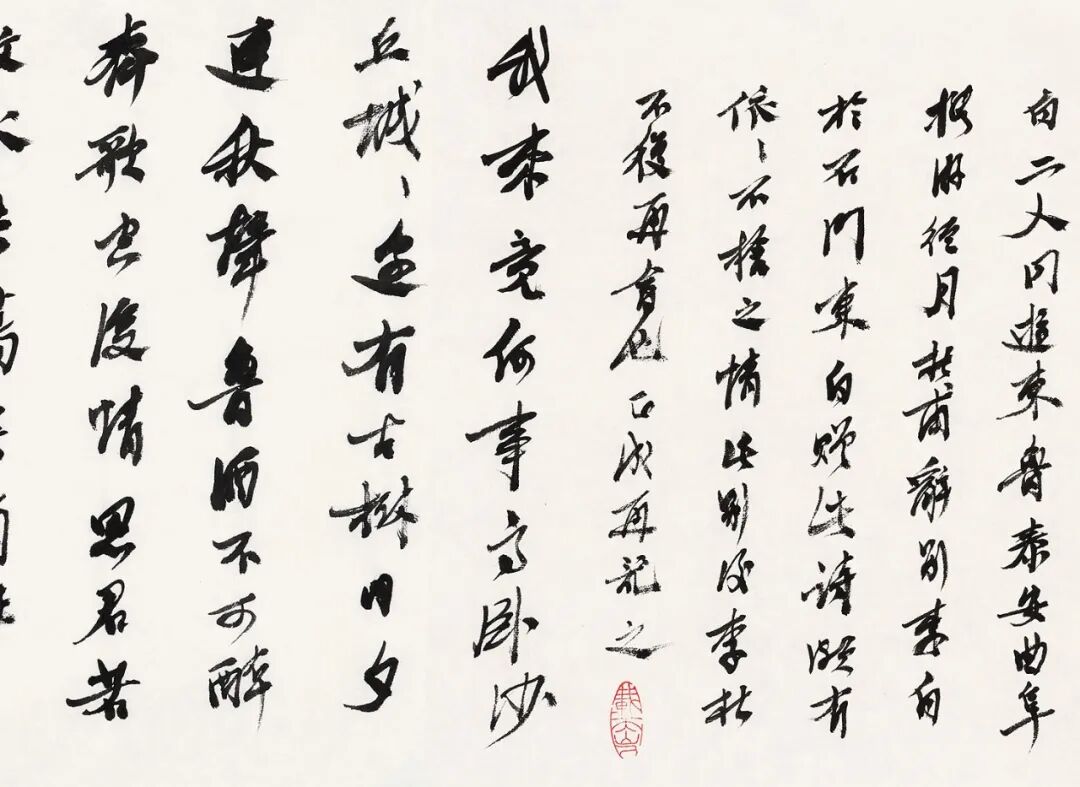 白二人同遊東魯泰安曲阜
游經月杜甫辭別李白
於石門東白贈此詩頗有
依、不捨之情此別後李杜
不復再會也 成再記之
我來竟何事高臥沙
丘城、邊有古樹日夕
連秋聲魯酒不可醉
齊歌空復情思君若
汶水